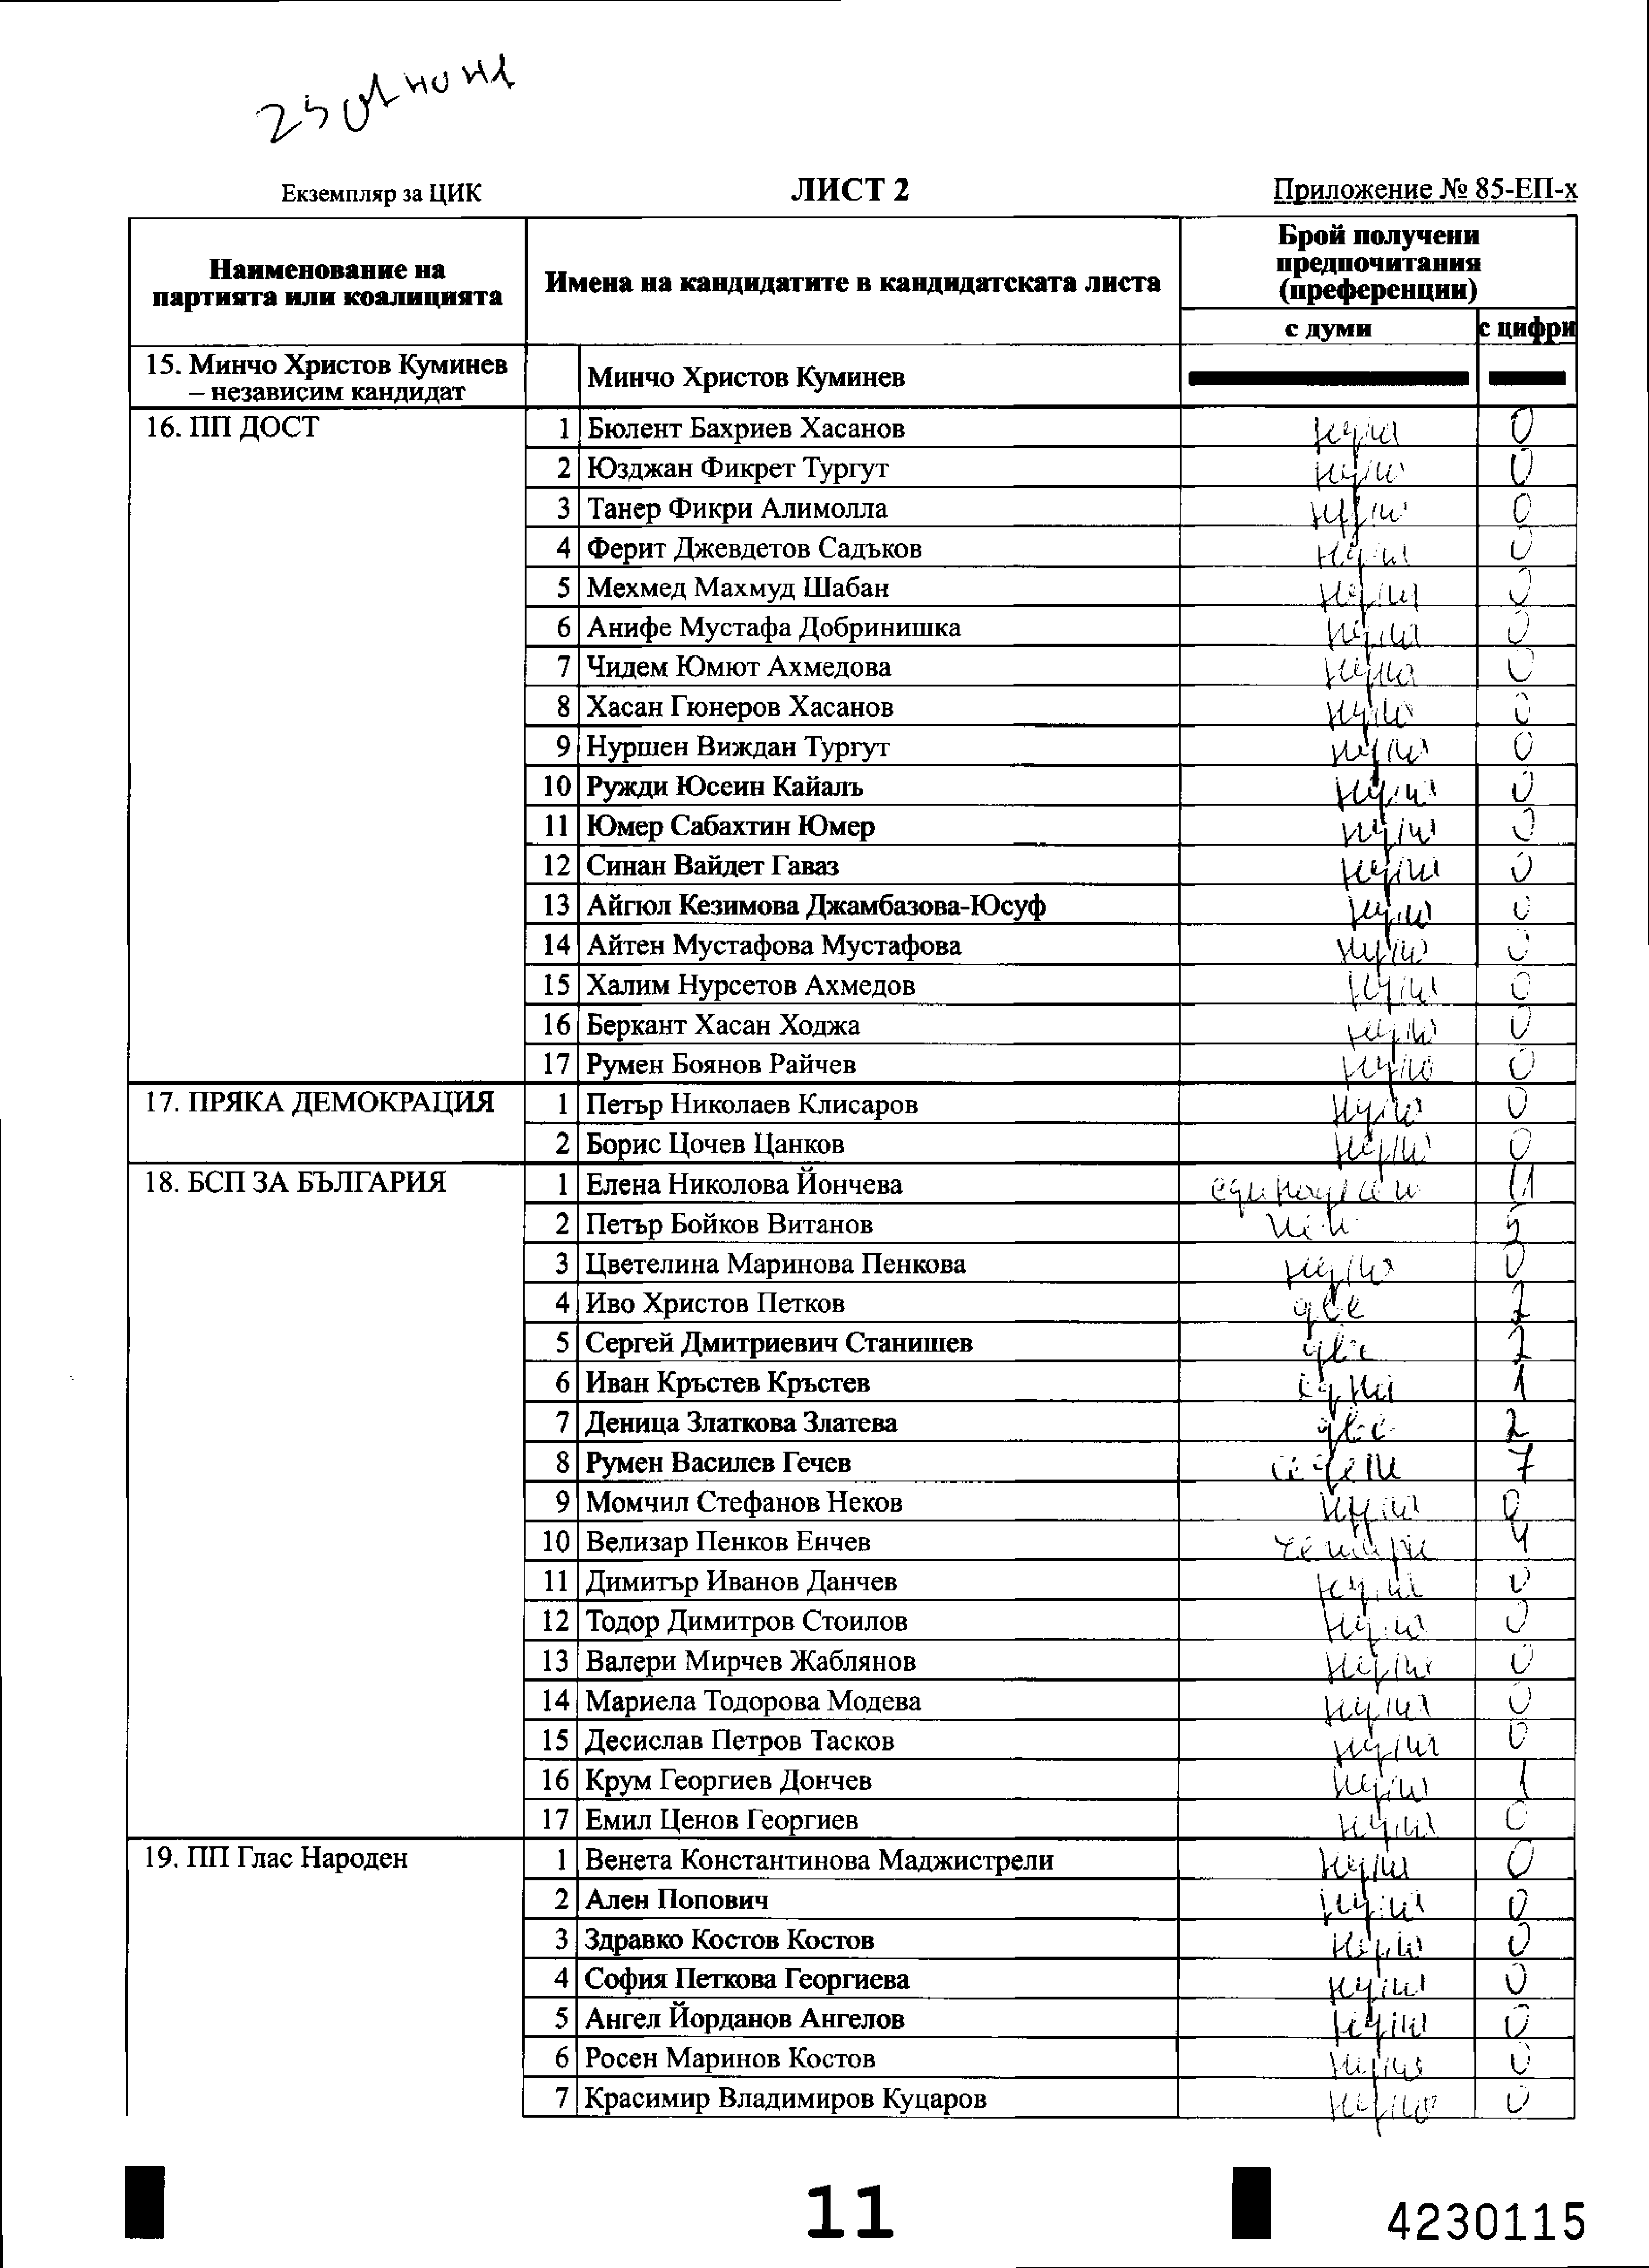 Екземпляр за ЦИК
ЛИСТ 2
Приложение № 85-ЕП-х
Наименование на партията или коалицията
Имена на кандидатите в кандидатската листа
Брой получени предпочитания (преференции)
с думи
с цифри
15. Минчо Христов Куминев – независим кандидат
Минчо Христов Куминев
16. ПП ДОСТ
1 Бюлент Бахриев Хасанов нула 0
2 Юзджан Фикрет Тургут нула 0
3 Танер Фикри Алимолла нула 0
4 Ферит Джевдетов Садъков нула 0
5 Мехмед Махмуд Шабан нула 0
6 Анифе Мустафа Добринишка нула 0
7 Чидем Юмют Ахмедова нула 0
8 Хасан Гюнеров Хасанов нула 0
9 Нуршен Виждан Тургут нула 0
10 Ружди Юсеин Кайалъ нула 0
11 Юмер Сабахтин Юмер нула 0
12 Синан Вайдет Гаваз нула 0
13 Айгюл Кезимова Джамбазова-Юсуф нула 0
14 Айтен Мустафова Мустафова нула 0
15 Халим Нурсетов Ахмедов нула 0
16 Беркант Хасан Ходжа нула 0
17 Румен Боянов Райчев нула 0
17. ПРЯКА ДЕМОКРАЦИЯ
1 Петър Николаев Клисаров нула 0
2 Борис Цочев Цанков нула 0
18. БСП ЗА БЪЛГАРИЯ
1 Елена Николова Йончева 11
2 Петър Бойков Витанов пет 5
3 Цветелина Маринова Пенкова нула 0
4 Иво Христов Петков две 2
5 Сергей Дмитриевич Станишев две 2
6 Иван Кръстев Кръстев една 1
7 Деница Златкова Златева две 2
8 Румен Василев Гечев седем 7
9 Момчил Стефанов Неков нула 0
10 Велизар Пенков Енчев четири 4
11 Димитър Иванов Данчев нула 0
12 Тодор Димитров Стоилов нула 0
13 Валери Мирчев Жаблянов нула 0
14 Мариела Тодорова Модева нула 0
15 Десислав Петров Тасков нула 0
16 Крум Георгиев Дончев нула 1
17 Емил Ценов Георгиев нула 0
19. ПП Глас Народен
1 Венета Константинова Маджистрели нула 0
2 Ален Попович нула 0
3 Здравко Костов Костов нула 0
4 София Петкова Георгиева нула 0
5 Ангел Йорданов Ангелов нула 0
6 Росен Маринов Костов нула 0
7 Красимир Владимиров Куцаров нула 0
11
4230115